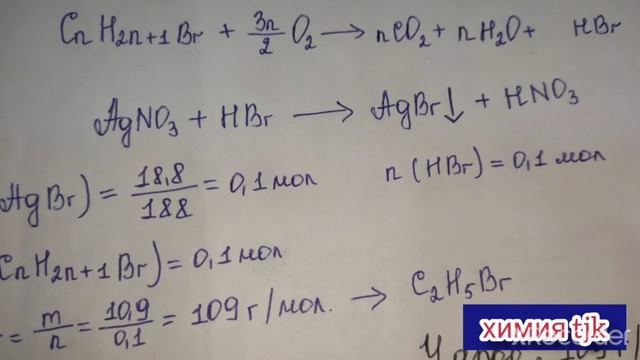 CnH2n+1Br + 3n/2 O2 → nCO2 + nH2O + HBr
AgNO3 + HBr → AgBr↓ + HNO3
AgBr) = 18,8/188 = 0,1 мол n(HBr) = 0,1 мол
CnH2n+1Br) = 0,1 мол
= m/n = 10,9/0,1 = 109 г/мол. → C2H5Br
химия tjk